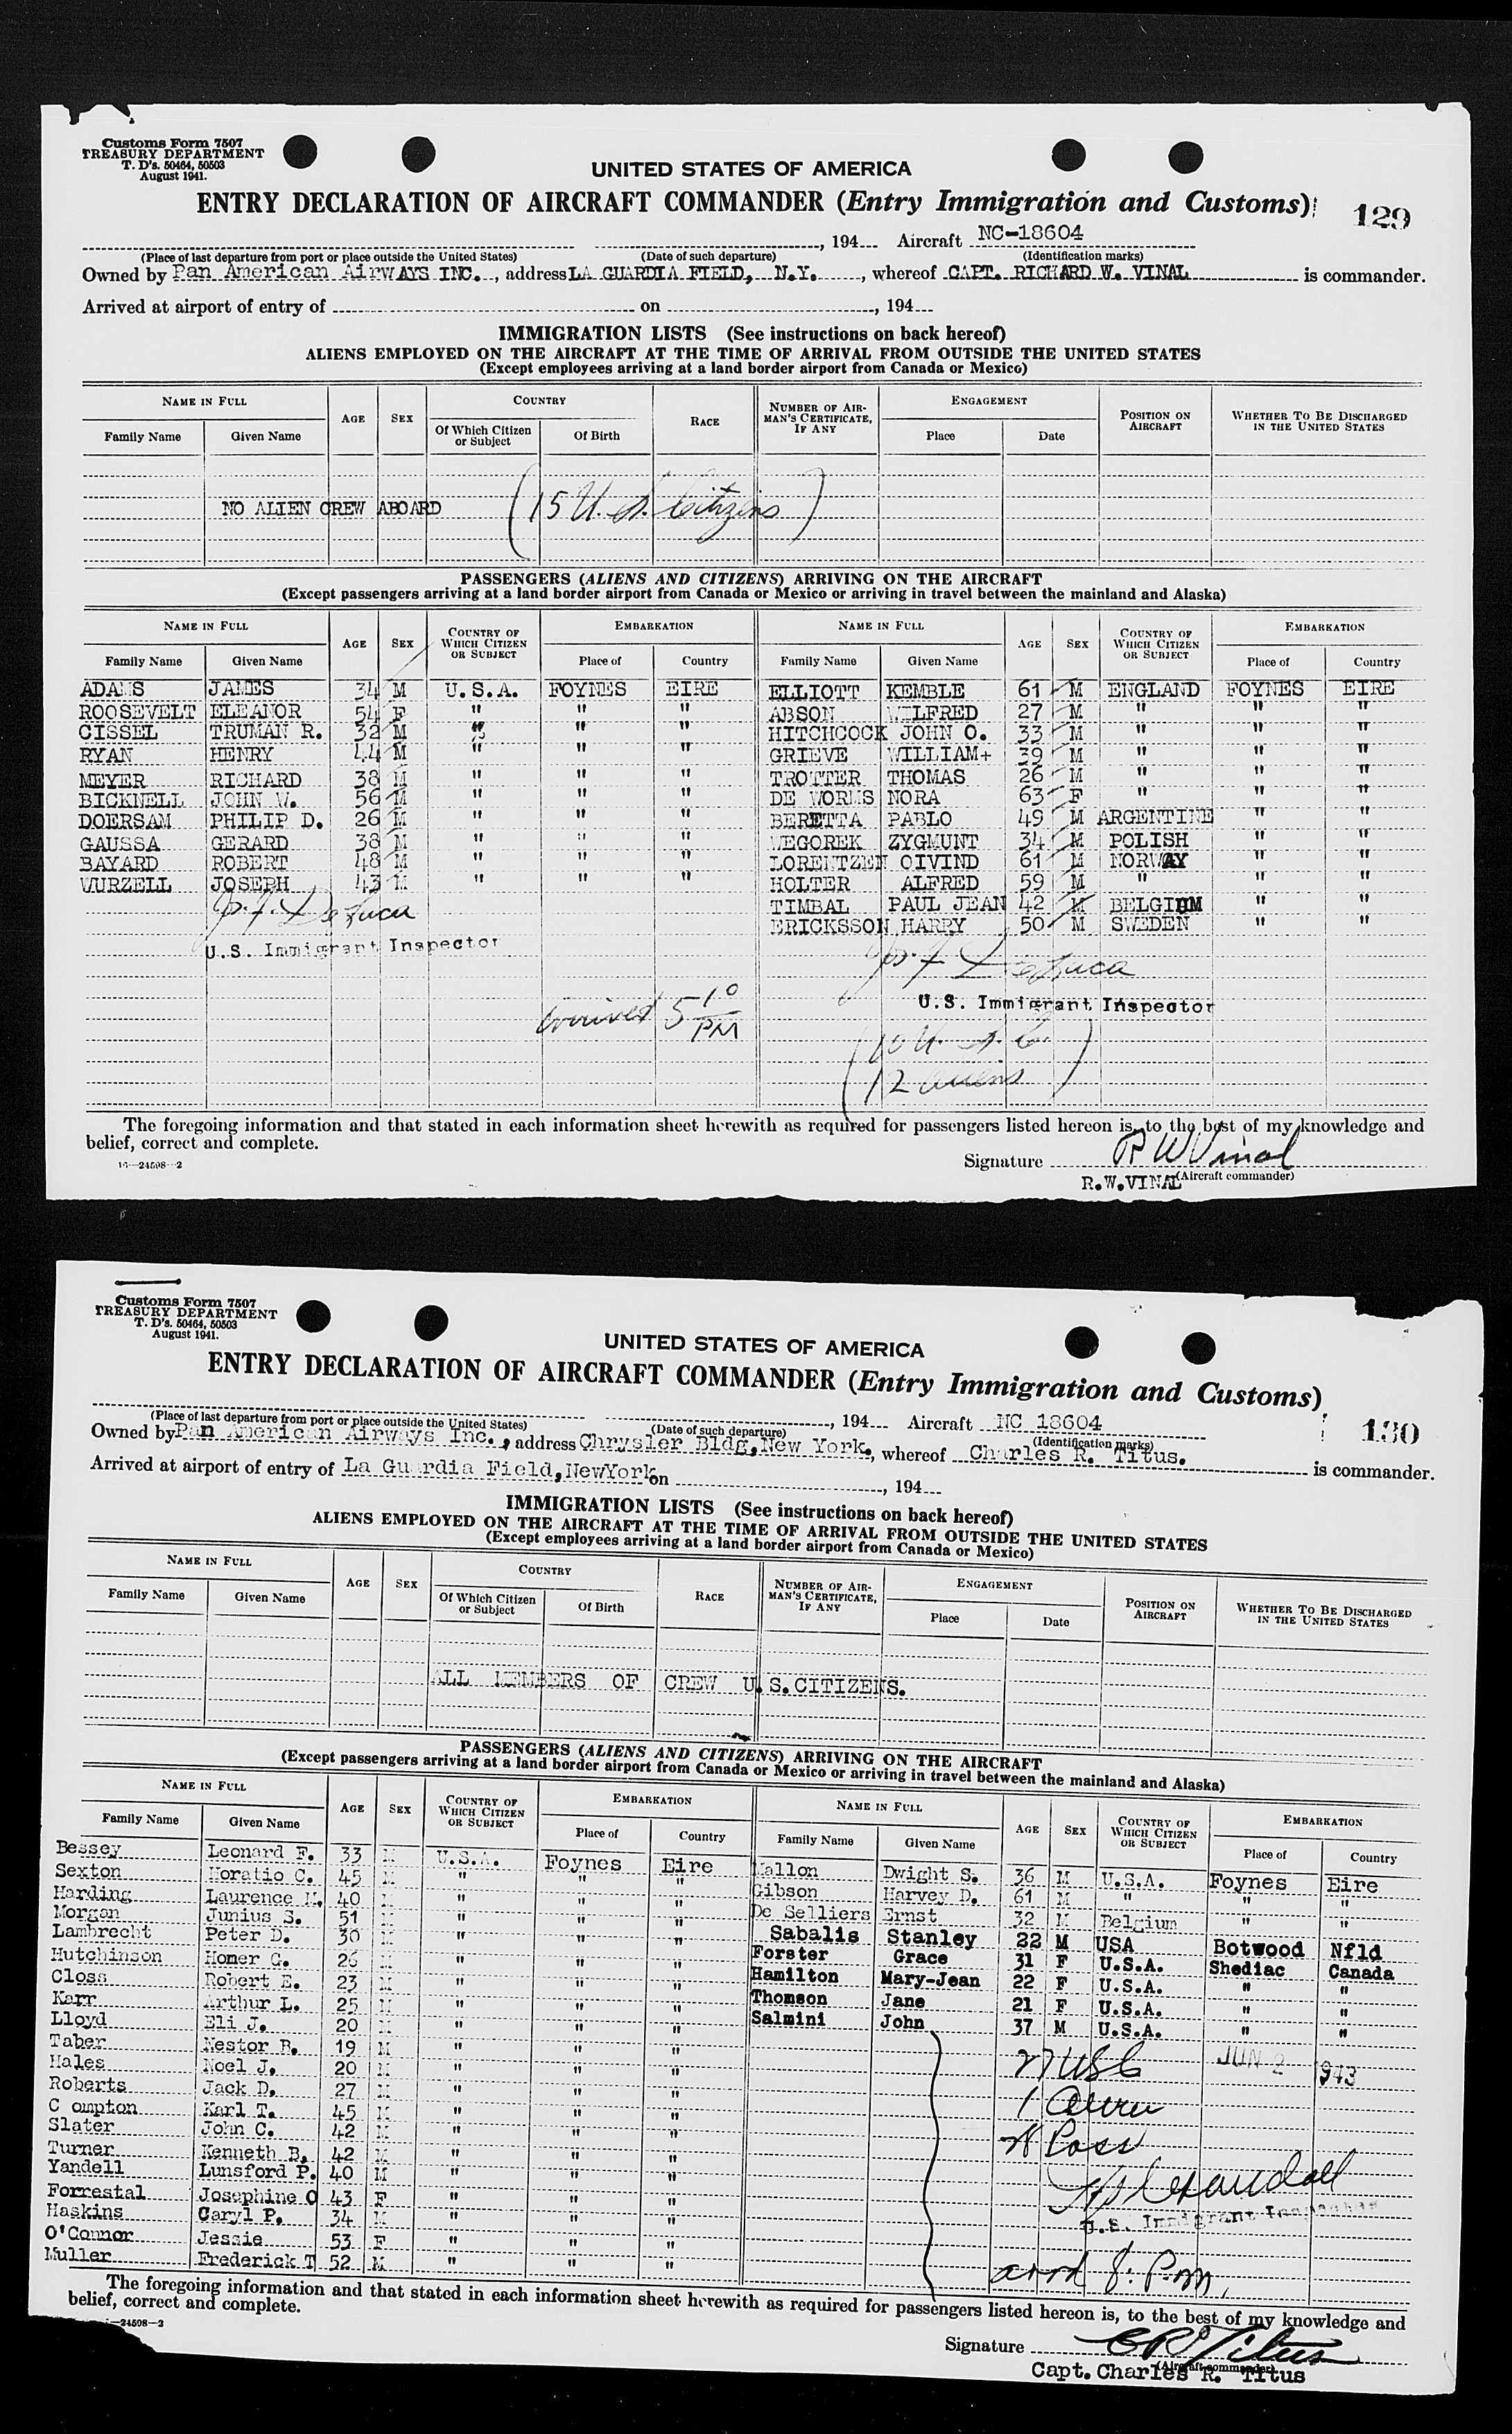 Customs Form 7507
TREASURY DEPARTMENT
T. D's. 50464, 50503
August 1941.
UNITED STATES OF AMERICA
ENTRY DECLARATION OF AIRCRAFT COMMANDER (Entry Immigration and Customs)
129
, 194 Aircraft NC-18604
(Place of last departure from port or place outside the United States) (Date of such departure) (Identification marks)
Owned by Pan American AirWAYS INC. , address LA GUARDIA FIELD, N.Y. , whereof CAPT. RICHARD W. VINAL is commander.
Arrived at airport of entry of on , 194
IMMIGRATION LISTS (See instructions on back hereof)
ALIENS EMPLOYED ON THE AIRCRAFT AT THE TIME OF ARRIVAL FROM OUTSIDE THE UNITED STATES
(Except employees arriving at a land border airport from Canada or Mexico)
NAME IN FULL AGE SEX COUNTRY RACE NUMBER OF AIR-MAN'S CERTIFICATE, IF ANY ENGAGEMENT POSITION ON AIRCRAFT WHETHER TO BE DISCHARGED IN THE UNITED STATES
Family Name Given Name Of Which Citizen or Subject Of Birth Place Date
NO ALIEN CREW ABOARD (15 U.S. Citizens)
PASSENGERS (ALIENS AND CITIZENS) ARRIVING ON THE AIRCRAFT
(Except passengers arriving at a land border airport from Canada or Mexico or arriving in travel between the mainland and Alaska)
NAME IN FULL AGE SEX COUNTRY OF WHICH CITIZEN OR SUBJECT EMBARKATION NAME IN FULL AGE SEX COUNTRY OF WHICH CITIZEN OR SUBJECT EMBARKATION
Family Name Given Name Place of Country Family Name Given Name Place of Country
ADAMS JAMES 34 M U.S.A. FOYNES EIRE ELLIOTT KEMBLE 61 M ENGLAND FOYNES EIRE
ROOSEVELT ELEANOR 54 F " " " ABSON WILFRED 27 M " " "
CISSEL TRUMAN R. 32 M " " " HITCHCOCK JOHN O. 33 M " " "
RYAN HENRY 44 M " " " GRIEVE WILLIAM+ 39 M " " "
MEYER RICHARD 38 M " " " TROTTER THOMAS 26 M " " "
BICKNELL JOHN W. 56 M " " " DE WORMS NORA 63 F " " "
DOERSAM PHILIP D. 26 M " " " BERETTA PABLO 49 M ARGENTINE " "
GAUSSA GERARD 38 M " " " WEGOREK ZYGMUNT 34 M POLISH " "
BAYARD ROBERT 48 M " " " LORENTZEN OIVIND 61 M NORWAY " "
WURZELL JOSEPH 43 M " " " HOLTER ALFRED 59 M " " "
Jos. F. DeLuca TIMBAL PAUL JEAN 42 M BELGIUM " "
ERICKSSON HARRY 50 M SWEDEN " "
U.S. Immigrant Inspector
Jos. F. DeLuca
U.S. Immigrant Inspector
arrived 5 10 PM
(10 U.S.C.
12 aliens)
The foregoing information and that stated in each information sheet herewith as required for passengers listed hereon is, to the best of my knowledge and
belief, correct and complete.
16—24598—2
Signature R W Vinal
R.W.VINAL (Aircraft commander)
Customs Form 7507
TREASURY DEPARTMENT
T. D's. 50464, 50503
August 1941.
UNITED STATES OF AMERICA
ENTRY DECLARATION OF AIRCRAFT COMMANDER (Entry Immigration and Customs)
130
, 194 Aircraft NC 18604
(Place of last departure from port or place outside the United States) (Date of such departure) (Identification marks)
Owned by Pan American Airways Inc. , address Chrysler Bldg, New York. , whereof Charles R. Titus. is commander.
Arrived at airport of entry of La Guardia Field, NewYork on , 194
IMMIGRATION LISTS (See instructions on back hereof)
ALIENS EMPLOYED ON THE AIRCRAFT AT THE TIME OF ARRIVAL FROM OUTSIDE THE UNITED STATES
(Except employees arriving at a land border airport from Canada or Mexico)
NAME IN FULL AGE SEX COUNTRY RACE NUMBER OF AIR-MAN'S CERTIFICATE, IF ANY ENGAGEMENT POSITION ON AIRCRAFT WHETHER TO BE DISCHARGED IN THE UNITED STATES
Family Name Given Name Of Which Citizen or Subject Of Birth Place Date
ALL MEMBERS OF CREW U.S.CITIZENS.
PASSENGERS (ALIENS AND CITIZENS) ARRIVING ON THE AIRCRAFT
(Except passengers arriving at a land border airport from Canada or Mexico or arriving in travel between the mainland and Alaska)
NAME IN FULL AGE SEX COUNTRY OF WHICH CITIZEN OR SUBJECT EMBARKATION NAME IN FULL AGE SEX COUNTRY OF WHICH CITIZEN OR SUBJECT EMBARKATION
Family Name Given Name Place of Country Family Name Given Name Place of Country
Bessey Leonard F. 33 M U.S.A. Foynes Eire Mallon Dwight S. 36 M U.S.A. Foynes Eire
Sexton Horatio C. 45 M " " " Gibson Harvey D. 61 M " " "
Harding Laurence M. 40 M " " " De Selliers Ernst 32 M Belgium " "
Morgan Junius S. 51 M " " " Sabalis Stanley 22 M USA Botwood Nfld
Lambrecht Peter D. 30 M " " " Forster Grace 31 F U.S.A. Shediac Canada
Hutchinson Homer G. 26 M " " " Hamilton Mary-Jean 22 F U.S.A. " "
Closs Robert E. 23 M " " " Thomson Jane 21 F U.S.A. " "
Karr Arthur L. 25 M " " " Salmini John 37 M U.S.A. " "
Lloyd Eli J. 20 M " " "
Taber Nestor R. 19 M " " " 27 USC JUN 2 1943
Hales Noel J. 20 M " " "
Roberts Jack D. 27 M " " " 1 Alien
C ompton Karl T. 45 M " " "
Slater John C. 42 M " " " 28 Pass
Turner Kenneth B. 42 M " " "
Yandell Lunsford P. 40 M " " "
Forrestal Josephine O 43 F " " "
Haskins Caryl P. 34 M " " " U.S. Immigrant Inspector
O'Connor Jessie 53 F " " "
Muller Frederick T 52 M " " " arrd 8: P.m.
The foregoing information and that stated in each information sheet herewith as required for passengers listed hereon is, to the best of my knowledge and
belief, correct and complete.
—24598—2
Signature C R Titus
(Aircraft commander)
Capt. Charles R. Titus